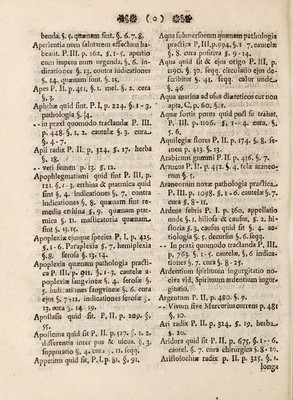 ( o )
benda. §. 5. quænam sint. §. 6. 7. 8.
Aperientia num salutarem effectum habeant.
P. III. p. 162, §. 1-5. apertio
cum impetu num urgenda. §. 6. indicationes
§. 13. contra indicationes
§. 14. quænam sint. §. 15.
Apes P. II. p. 411, §. 1. mel. §. 2. cera
§. 3.
Aphthæ quid sint. P. I. p. 224. §. 1-3.
pathologia §.
-- in praxi quomodo tractandæ P. III.
p. 448. §. 1. 2. cautelæ §. 3. cura.
§. 4-7.
Apii radix P. II. p. 324, §. 17. herba
§. 18.
-- veri semen p. 13. §. 12.
Apophlegmatismi quid sint P. III, p.
121. §. 1-3. errhina & ptarmica quid
sint §. 4. indicationes §. 7. contra
indicationes §. 8. quænam sint remedia
errhina §. 9. quænam ptarmica
§. 11. masticatoria quænam
sint §. 13. 15.
Apoplexia ejusque species P. I, p. 425,
§. 1-6. Paraplexia §. 7. hemiplexia
§. 8. serosa §. 13. 14.
Apoplexia quænam pathologia practica
P. III. p. 911. §. 1-3. cautelæ apoplexiæ
sanguineæ §. 4. serosæ §.
5. indicationes sanguineæ §. 6. cura
ejus §. 7-12. indicationes serosæ §.
13. cura §. 14. 19.
Apostasis quid sit, P. II, p. 209. §.
35.
Apostema quid sit P, II. p. 527. §. 1. 2.
differentia inter pus & ulcus. §. 3.
suppuratio §. 4. cura §. 11. seqq.
Appetitus quid sit, P. I. p. 81. §. 91.
Aqua submersorum quænam pathologia
practica P, III, p. 994. §. 1 7. cautelæ
§. 8. cura positiva §. 9-14.
Aqua quid sit & ejus origo P. III, p.
1190. §. 30. seqq. circulatio ejus describitur
§. 41. seqq. qualis unde.
§. 46
Aqua marina ad usus diæteticos cur non
apta, C, p, 60. §. 1.
Aqua fortis potus quid sit trahat.
P. III. p. 1106. §. 1-4. cura, §.
5, 6.
Aquilegiæ flores P. II, p, 174. §. 8. semen
p. 413. §. 13.
Arabicum gummi P. II. p. 416. §. 7.
Araneus P. II, p. 452, §. 4. telæ araneorum
§. 5.
Araneorum noxæ pathologia practica.
P. III, p. 1098. §. 1-6. cautelæ §. 7.
cura §. 8-11.
Ardens febris P. I, p. 560, appellatio
unde §. 1. biliosa & causus, §. 2. bilosa
§. 3, causus quid sit §. 4. aetiologia
§. 5. decursus §. 6. seqq.
-- In praxi quomodo tractanda P. III,
p, 765. §. 1-5. cautelæ, §. 6 indicationes
§. 7. cura §. 8-25.
Ardentium spirituum ingurgitatio nociva
vid, Spirituum ingurgitatio,
Argentum P. II, p. 480. §. 9.
-- Vivum sive Mercurius currens p. 481
§. 10.
Ari radix P. II, p, 324. §. 19, herba,
§. 20.
Aridura quid sit P. II, p, 675. §. 1--6.
cautel. §. 7. cura chirurgica §. 8-10.
Aristolochiæ radix P. II, p. 325. §. 1.
longa